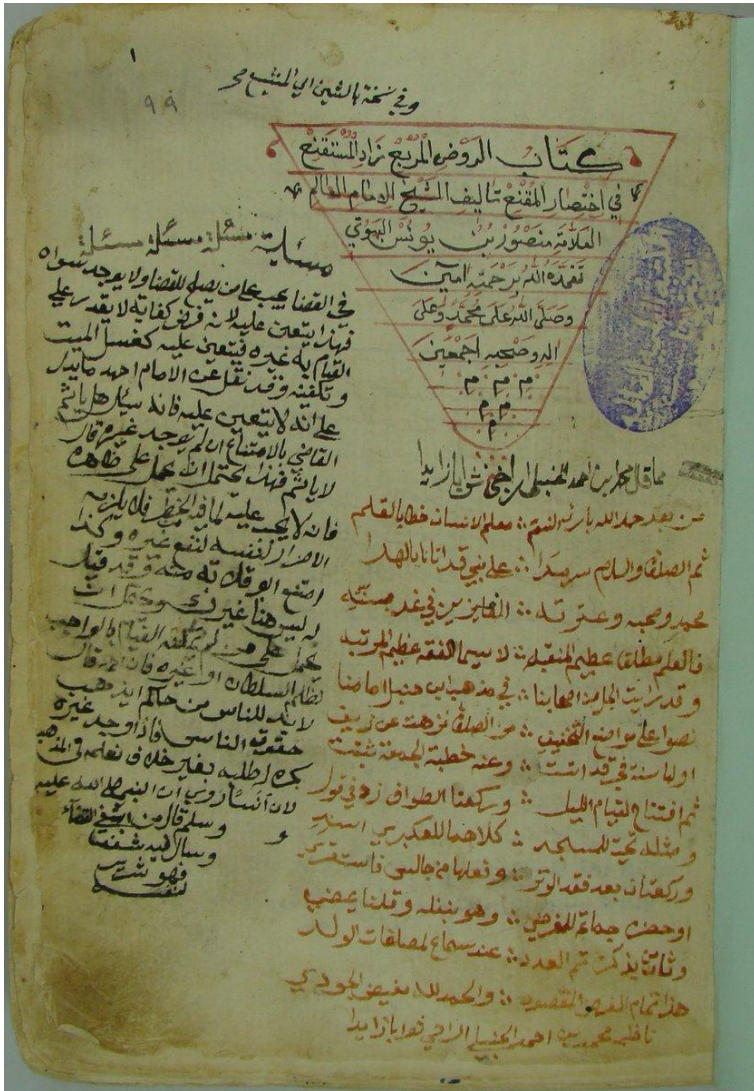 ١
٩٩
وفي نسخة بالشين اي المشبع
كتاب الروض المربع زاد المستقنع
في اختصار المقنع تاليف الشيخ الامام العالم
العلامة منصور بن يونس البهوتي
تغمده الله برحمته امين
وصلى الله على محمد وعلى
اله وصحبه اجمعين
م م م
م م
م
مما قال محمد ابن احمد الحنبلي الراجي ثوابا زايدا
من بعد حمد الله بارئ النسم ؞ معلم الانسان خطا بالقلم
ثم الصلاة والسلام سرمدا ؞ على نبي قد اتانا بالهدا
محمد وصحبه وعترته ؞ الفايزين في غد
فالعلم مطلقا عظيم المنقبه ؞ لا سيما الفقه عظيم المرتبه
وقد رايت الجل من اصحابنا ؞ في مذهب ابن حنبل امامنا
نصوا على مواضع التخفيف ؞ من الصلاة نزهت عن زيف
اولها سنة فجر قد اتت ؞ وعند خطبة الجمعة ثبتت
ثم افتتاح لقيام الليل ؞ وركعتا الطواف زد في قول
ومثله تحية للمسجد ؞ كلاهما للعكبري
وركعتان بعد فقد الوتر ؞ وفعلها من جالس فاستقر
او حضرة جماعة للفرض ؞ وهو بنفله وقلنا يمضي
وثامن يذكر تم العدد ؞ عند سماع الولد
هذا تمام الغرض المقصود ؞ والحمد لله مفيض الجود
ناظمه محمد بن احمد الحنبلي الراجي ثوابا زايدا
مسئلة مسئلة مسئلة مسئلة
في القضا يجب على من يصلح للقضا ولا يوجد سواه
فهذا يتعين عليه لانه فرض كفاية لا يقدر على
القيام به غيره فيتعين عليه كغسل الميت
وتكفينه وقد نقل عن الامام احمد ما يدل
على انه لا يتعين عليه فانه سئل هل ياثم
القاضي بالامتناع ان لم يوجد غيره قال
لا ياثم فهذا يحتمل انه يحمل على ظاهره
فانه لا يجب عليه لما فيه الخطر فلا يلزمه
الاضرار لنفسه لنفع غيره وكذا
امتنع ابو قلابة منه وقد قيل
له ليس هنا غيرك ويحتمل ان
يحمل على من لم يمكنه القيام بالواجب
لظلم السلطان او غيره فان احمد قال
لا بد للناس من حاكم ايذهب
حقوق الناس فاذا وجد غيره
كره طلبه بغير خلاف نعلمه في المذهب
لان انسا روى ان النبي صلى الله عليه
وسلم قال من ابتغى القضاء
وسال فيه شفعا